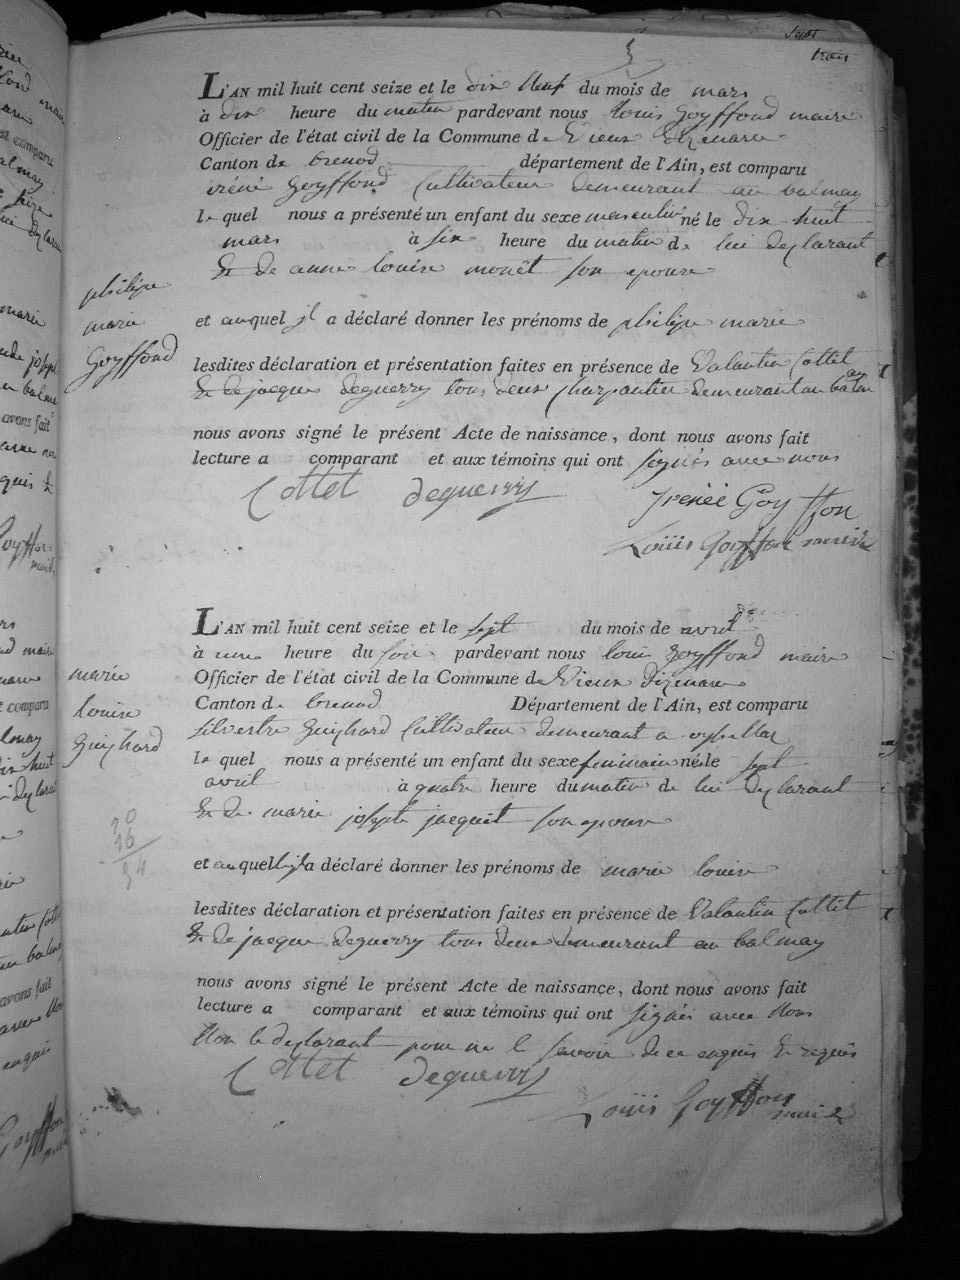 sept
trois
3
L'AN mil huit cent seize et le dix Neuf du mois de mars
à dix heure du matin pardevant nous louis goyffond maire
Officier de l'état civil de la Commune de Vieux dizenave
Canton de brenod département de l'Ain, est comparu
iréné goyffond Cultivateur demeurant au balmay
le quel nous a présenté un enfant du sexe masculin né le dix huit
mars à six heure du matin de lui declarant
Et de anne louise monêt son epouse
philipe
marie
Goyffond
et auquel il a déclaré donner les prénoms de philipe marie
lesdites déclaration et présentation faites en présence de Valantin Cottet
Et de jacque deguerry tous deux charpantier demeurant au balmay
nous avons signé le présent Acte de naissance, dont nous avons fait
lecture a comparant et aux témoins qui ont signés avec nous
Cottet deguerry Irenéé Goyffon
Loüis Goyffon maire
L'AN mil huit cent seize et le sept du mois de avril
à une heure du soir pardevant nous louis goyffond maire
Officier de l'état civil de la Commune de Vieux dizenave
Canton de brenod Département de l'Ain, est comparu
marie
louise
Guichard
silvestre guichard Cultivateur demeurant a
le quel nous a présenté un enfant du sexe feminain né le sept
avril à quatre heure du matin de lui declarant
Et de marie josepte jacquet son epouse
20
16
34
et auquel il a déclaré donner les prénoms de marie louise
lesdites déclaration et présentation faites en présence de Valantin Cottet
Et de jacque deguerry tous deux demeurant au balmay
nous avons signé le présent Acte de naissance, dont nous avons fait
lecture a comparant et aux témoins qui ont signés avec Nous
Non le declarant pour ne le savoir de ce enquis Et requis
Cottet deguerry
Loüis Goyffon maire